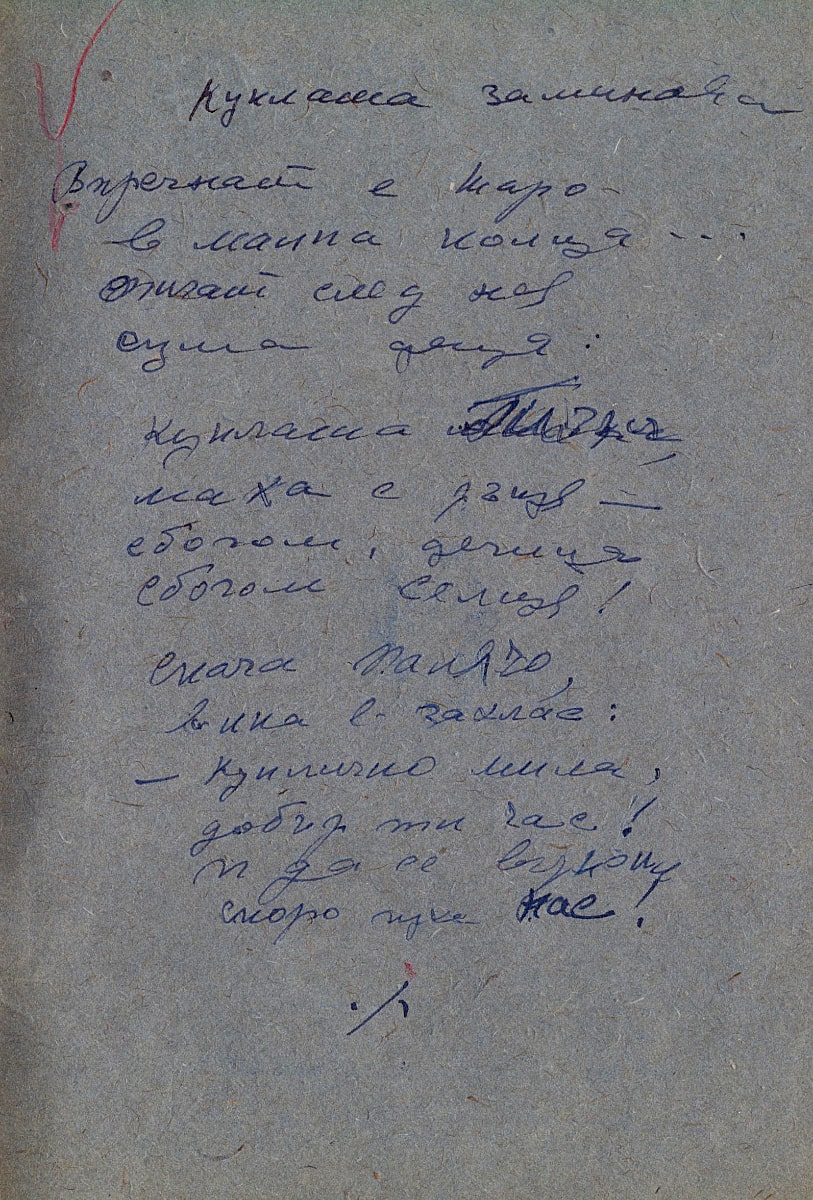 Куклата заминава
Впрегнат е Шаро –
в малка колица ...
тичат след нея
сума деца:
куклата
маха с ръце –
сбогом, дечица
сбогом селце!
Скача Палячо,
вика в захлас:
– Кукличко мила,
добър ти час!
и да се върнеш
скоро при нас!
./.